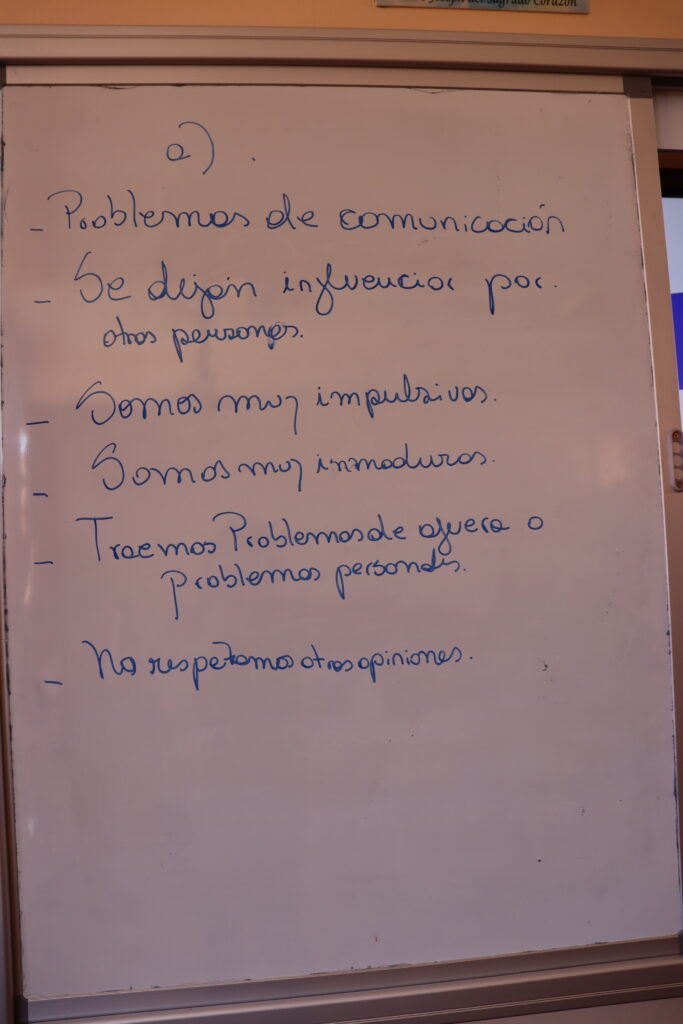 del Sagrado Corazón
a) .
- Problemas de comunicación
- Se dejan influenciar por.
otras personas.
- Somos muy impulsivos.
- Somos muy inmaduros.
- Traemos Problemas de afuera o
problemas personales.
- No respetamos otras opiniones.